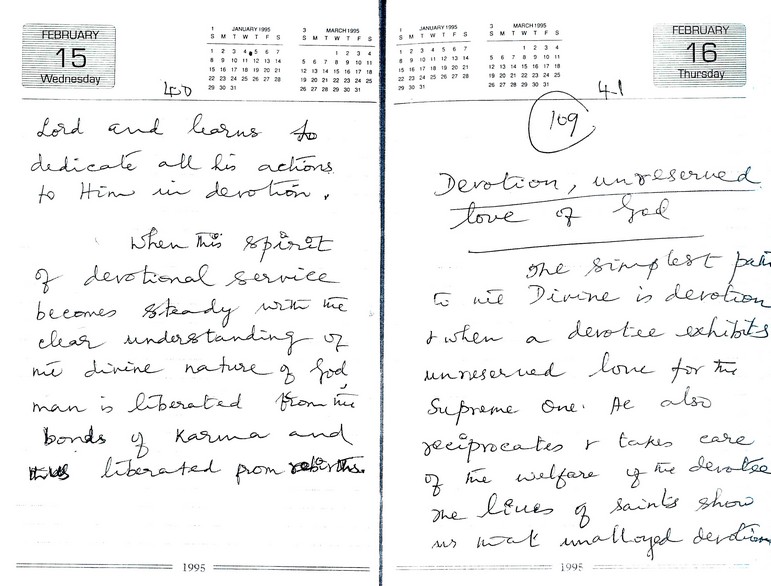 FEBRUARY
15
Wednesday
1 JANUARY 1995
S M T W T F S
1 2 3 4 5 6 7
8 9 10 11 12 13 14
15 16 17 18 19 20 21
22 23 24 25 26 27 28
29 30 31
3 MARCH 1995
S M T W T F S
1 2 3 4
5 6 7 8 9 10 11
12 13 14 15 16 17 18
19 20 21 22 23 24 25
26 27 28 29 30 31
40
Lord and learns to
dedicate all his actions
to Him in devotion.
When this spirit
of devotional service
becomes steady with the
clear understanding of
the divine nature of God,
man is liberated from the
bonds of Karma and
liberated from rebirths.
1995
1 JANUARY 1995
S M T W T F S
1 2 3 4 5 6 7
8 9 10 11 12 13 14
15 16 17 18 19 20 21
22 23 24 25 26 27 28
29 30 31
3 MARCH 1995
S M T W T F S
1 2 3 4
5 6 7 8 9 10 11
12 13 14 15 16 17 18
19 20 21 22 23 24 25
26 27 28 29 30 31
FEBRUARY
16
Thursday
41
109
Devotion, unreserved
love of God
The simplest path
to the Divine is devotion
& when a devotee exhibits
unreserved love for the
Supreme One. He also
reciprocates & takes care
of the welfare of the devotee
The lives of saints show
us what unalloyed devotion
1995